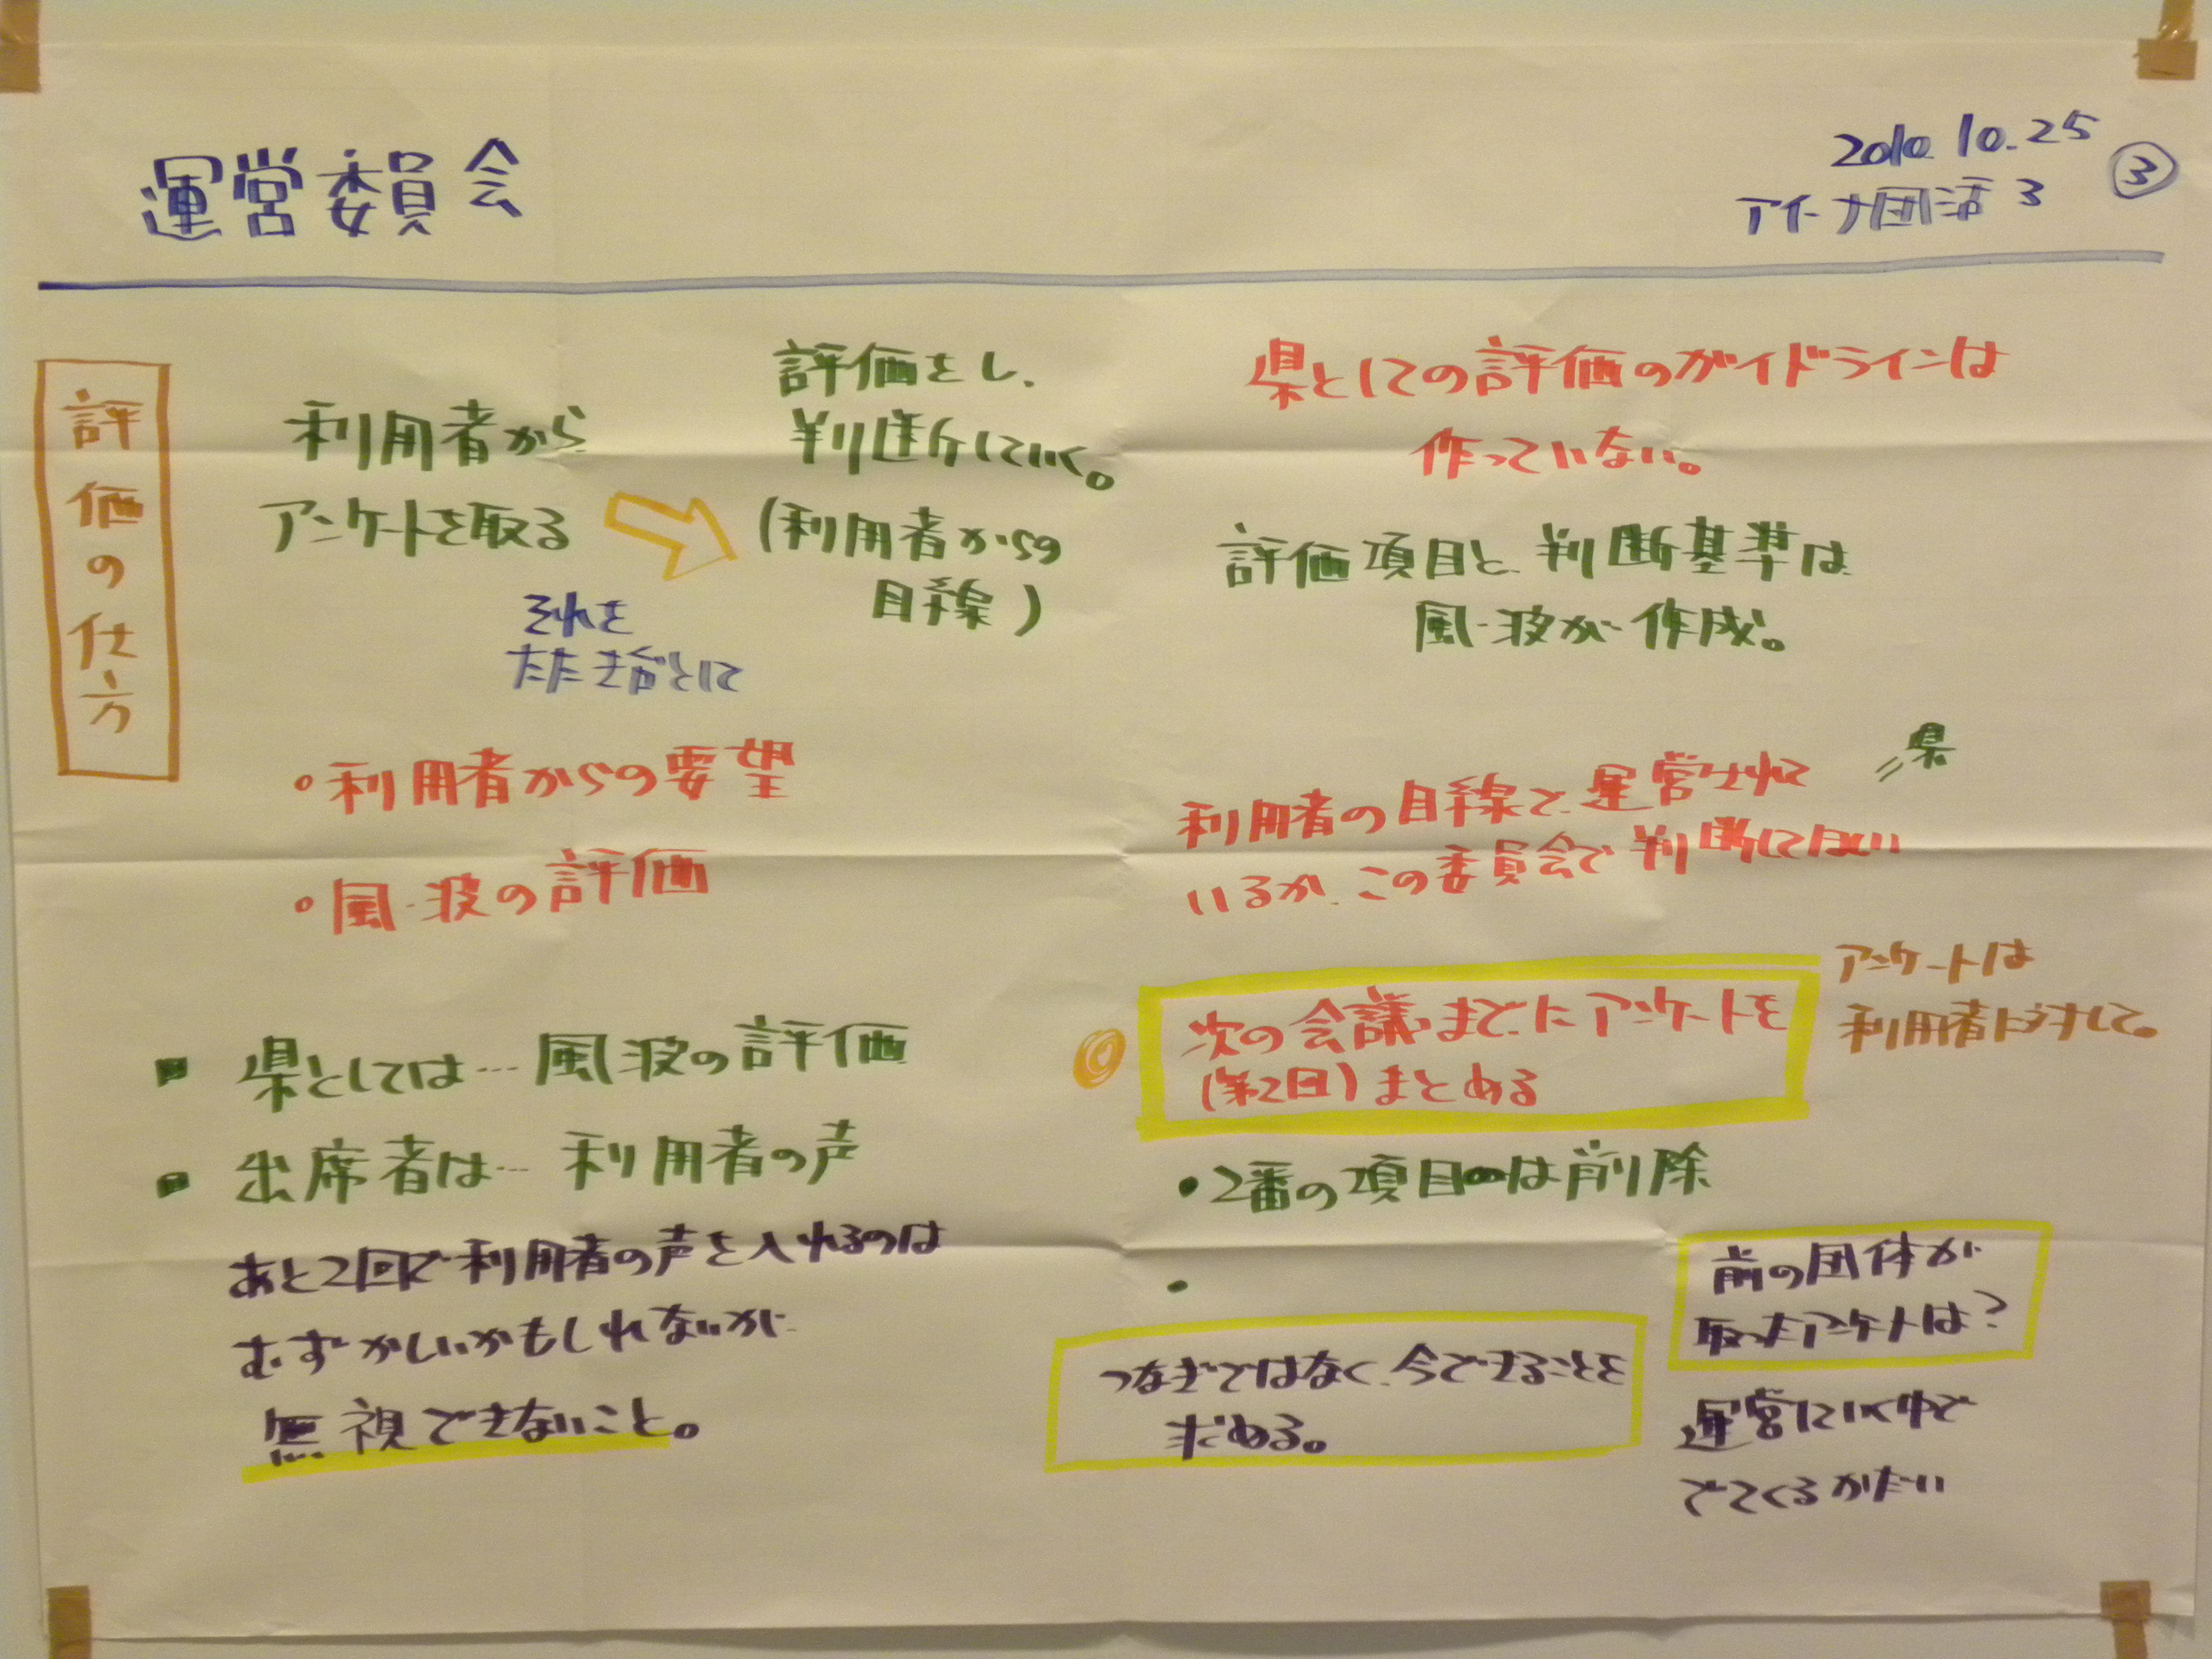 運営委員会
2010.10.25
アイーナ団活3
③
評価の仕方
利用者から
アンケートを取る
評価をし、
判断していく。
(利用者からの
目線)
それを
たたき台として
・利用者からの要望
・風・波の評価
■ 県としては…風・波の評価
■ 出席者は…利用者の声
あと2回で利用者の声を入れるのは
むずかしいかもしれないが
無視できないこと。
県としての評価のガイドラインは
作っていない。
評価項目と、判断基準は
風・波が作成。
利用者の目線で、運営されて
いるか、この委員会で判断してほしい
=県
◎ 次の会議までにアンケートを
(第2回)まとめる
アンケートは
利用者に対して。
・2番の項目は削除
・
つなぎではなく、今できることを
求める。
前の団体が
取ったアンケートは?
運営していく中で
でてくるかだい